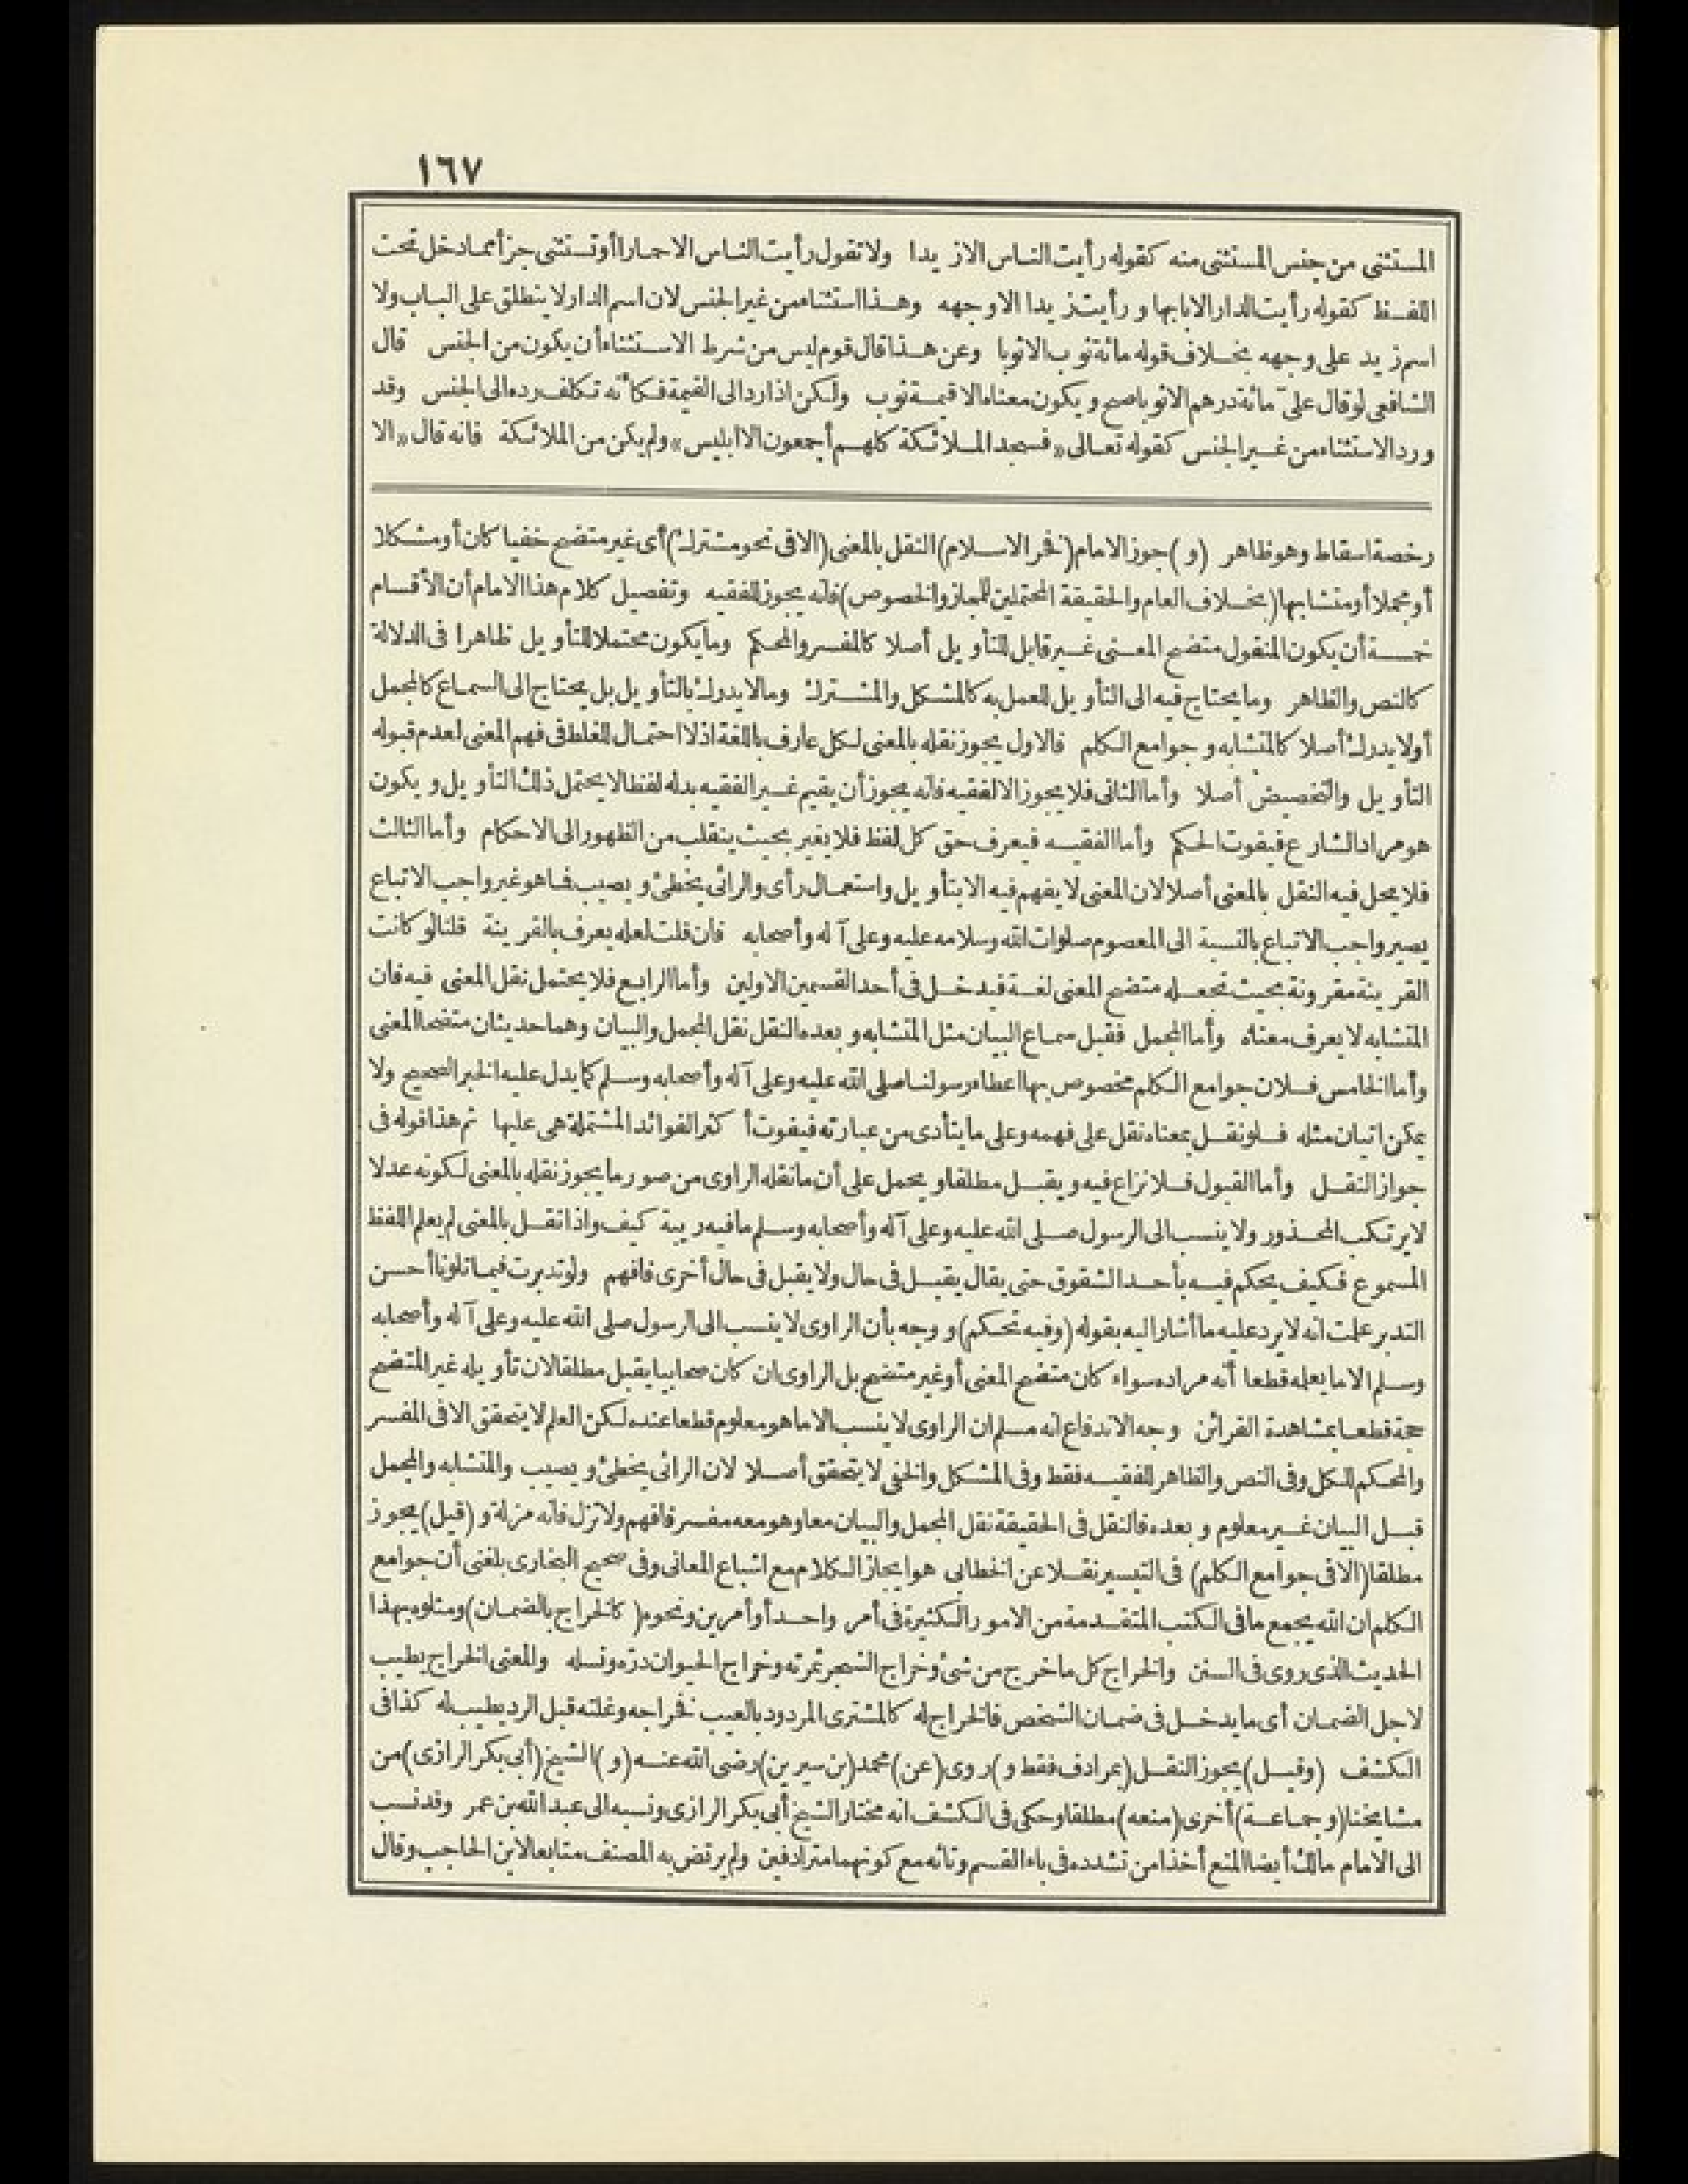 ١٦٧
المستثنى من جنس المستثنى منه كقوله رأيت الناس الا زيدا ولا تقول رأيت الناس الا حمارا أو تستثنى جزأ مما دخل تحت
اللفظ كقوله رأيت الدار الا بابها ورأيت زيدا الا وجهه وهذا استثناء من غير الجنس لان اسم الدار لا ينطلق على الباب ولا
اسم زيد على وجهه بخلاف قوله مائة ثوب الا ثوبا وعن هذا قال قوم ليس من شرط الاستثناء أن يكون من الجنس قال
الشافعى لو قال علىّ مائة درهم الا ثوبا صح ويكون معناه الا قيمة ثوب ولكن اذا رد الى القيمة فكأنه تكلف رده الى الجنس وقد
ورد الاستثناء من غير الجنس كقوله تعالى «فسجد الملائكة كلهم أجمعون الا ابليس» ولم يكن من الملائكة فانه قال «الا
رخصة اسقاط وهو ظاهر (و) جوز الامام (فخر الاسلام) النقل بالمعنى (الا فى نحو مشترك) أى غير متضح خفيا كان أو مشكلا
أو مجملا أو متشابها (بخلاف العام والحقيقة المحتملين للمجاز والخصوص) فانه يجوز للفقيه وتفصيل كلام هذا الامام أن الأقسام
خمسة أن يكون المنقول متضح المعنى غير قابل للتأويل أصلا كالمفسر والمحكم وما يكون محتملا للتأويل ظاهرا فى الدلالة
كالنص والظاهر وما يحتاج فيه الى التأويل للعمل به كالمشكل والمشترك وما لا يدرك بالتأويل بل يحتاج الى السماع كالمجمل
أو لا يدرك أصلا كالمتشابه وجوامع الكلم فالاول يجوز نقله بالمعنى لكل عارف باللغة اذ لا احتمال للغلط فى فهم المعنى لعدم قبوله
التأويل والتخصيص أصلا وأما الثانى فلا يجوز الا للفقيه فانه يجوز أن يقيم غير الفقيه بدله لفظا لا يحتمل ذلك التأويل ويكون
هو مراد الشارع فيفوت الحكم وأما الفقيه فيعرف حق كل لفظ فلا يغير بحيث ينقلب من الظهور الى الاحكام وأما الثالث
فلا يحل فيه النقل بالمعنى أصلا لان المعنى لا يفهم فيه الا بتأويل واستعمال رأى والرائى يخطئ ويصيب فما هو غير واجب الاتباع
يصير واجب الاتباع بالنسبة الى المعصوم صلوات الله وسلامه عليه وعلى آله وأصحابه فان قلت لعله يعرف بالقرينة قلنا لو كانت
القرينة مقرونة بحيث تجعله متضح المعنى لغة فيدخل فى أحد القسمين الاولين وأما الرابع فلا يحتمل نقل المعنى فيه فان
المتشابه لا يعرف معناه وأما المجمل فقبل سماع البيان مثل المتشابه وبعده النقل نقل المجمل والبيان وهما حديثان متضحا المعنى
وأما الخامس فلان جوامع الكلم مخصوص بها اعطاء رسولنا صلى الله عليه وعلى آله وأصحابه وسلم كما يدل عليه الخبر الصحيح ولا
يمكن اتيان مثله فلو نقل بمعناه نقل على فهمه وعلى ما يتأدى من عبارته فيفوت أكثر الفوائد المشتملة هى عليها ثم هذا قوله فى
جواز النقل وأما القبول فلا نزاع فيه ويقبل مطلقا ويحمل على أن ما نقله الراوى من صور ما يجوز نقله بالمعنى لكونه عدلا
لا يرتكب المحذور ولا ينسب الى الرسول صلى الله عليه وعلى آله وأصحابه وسلم ما فيه ريبة كيف واذا نقل بالمعنى لم يعلم اللفظ
المسموع فكيف يحكم فيه بأحد الشقوق حتى يقال يقبل فى حال ولا يقبل فى حال أخرى فافهم ولو تدبرت فيما تلونا أحسن
التدبر علمت انه لا يرد عليه ما أشار اليه بقوله (وفيه تحكم) ووجه بأن الراوى لا ينسب الى الرسول صلى الله عليه وعلى آله وأصحابه
وسلم الا ما يعلمه قطعا أنه مراده سواء كان متضح المعنى أو غير متضح بل الراوى ان كان صحابيا يقبل مطلقا لان تأويله غير المتضح
حجة قطعا بمشاهدة القرائن وجه الاندفاع انه مسلم ان الراوى لا ينسب الا ما هو معلوم قطعا عنده لكن العلم لا يتحقق الا فى المفسر
والمحكم للكل وفى النص والظاهر للفقيه فقط وفى المشكل والخفى لا يتحقق أصلا لان الرائى يخطئ ويصيب والمتشابه والمجمل
قبل البيان غير معلوم وبعده فالنقل فى الحقيقة نقل المجمل والبيان معا وهو معه مفسر فافهم ولا تزل فانه مزلة و (قيل) يجوز
مطلقا (الا فى جوامع الكلم) فى التيسير نقلا عن الخطابى هو ايجاز الكلام مع اشباع المعانى وفى صحيح البخارى بلغنى أن جوامع
الكلم ان الله يجمع ما فى الكتب المتقدمة من الامور الكثيرة فى أمر واحد أو أمرين ونحوه (كالخراج بالضمان) ومثلوه بهذا
الحديث الذى روى فى السنن والخراج كل ما خرج من شئ وخراج الشجر ثمرته وخراج الحيوان دره ونسله والمعنى الخراج يطيب
لاجل الضمان أى ما يدخل فى ضمان الشخص فالخراج له كالمشترى المردود بالعيب فخراجه وغلته قبل الرد يطيب له كذا فى
الكشف (وقيل) يجوز النقل (بمرادف فقط و) روى (عن) محمد (بن سيرين) رضى الله عنه (و) الشيخ (أبى بكر الرازى) من
مشايخنا (وجماعة) أخرى (منعه) مطلقا وحكى فى الكشف انه مختار الشيخ أبى بكر الرازى ونسبه الى عبد الله بن عمر وقد نسب
الى الامام مالك أيضا المنع أخذا من تشدده فى باء القسم وتائه مع كونهما مترادفين ولم يرتض به المصنف متابعا لابن الحاجب وقال